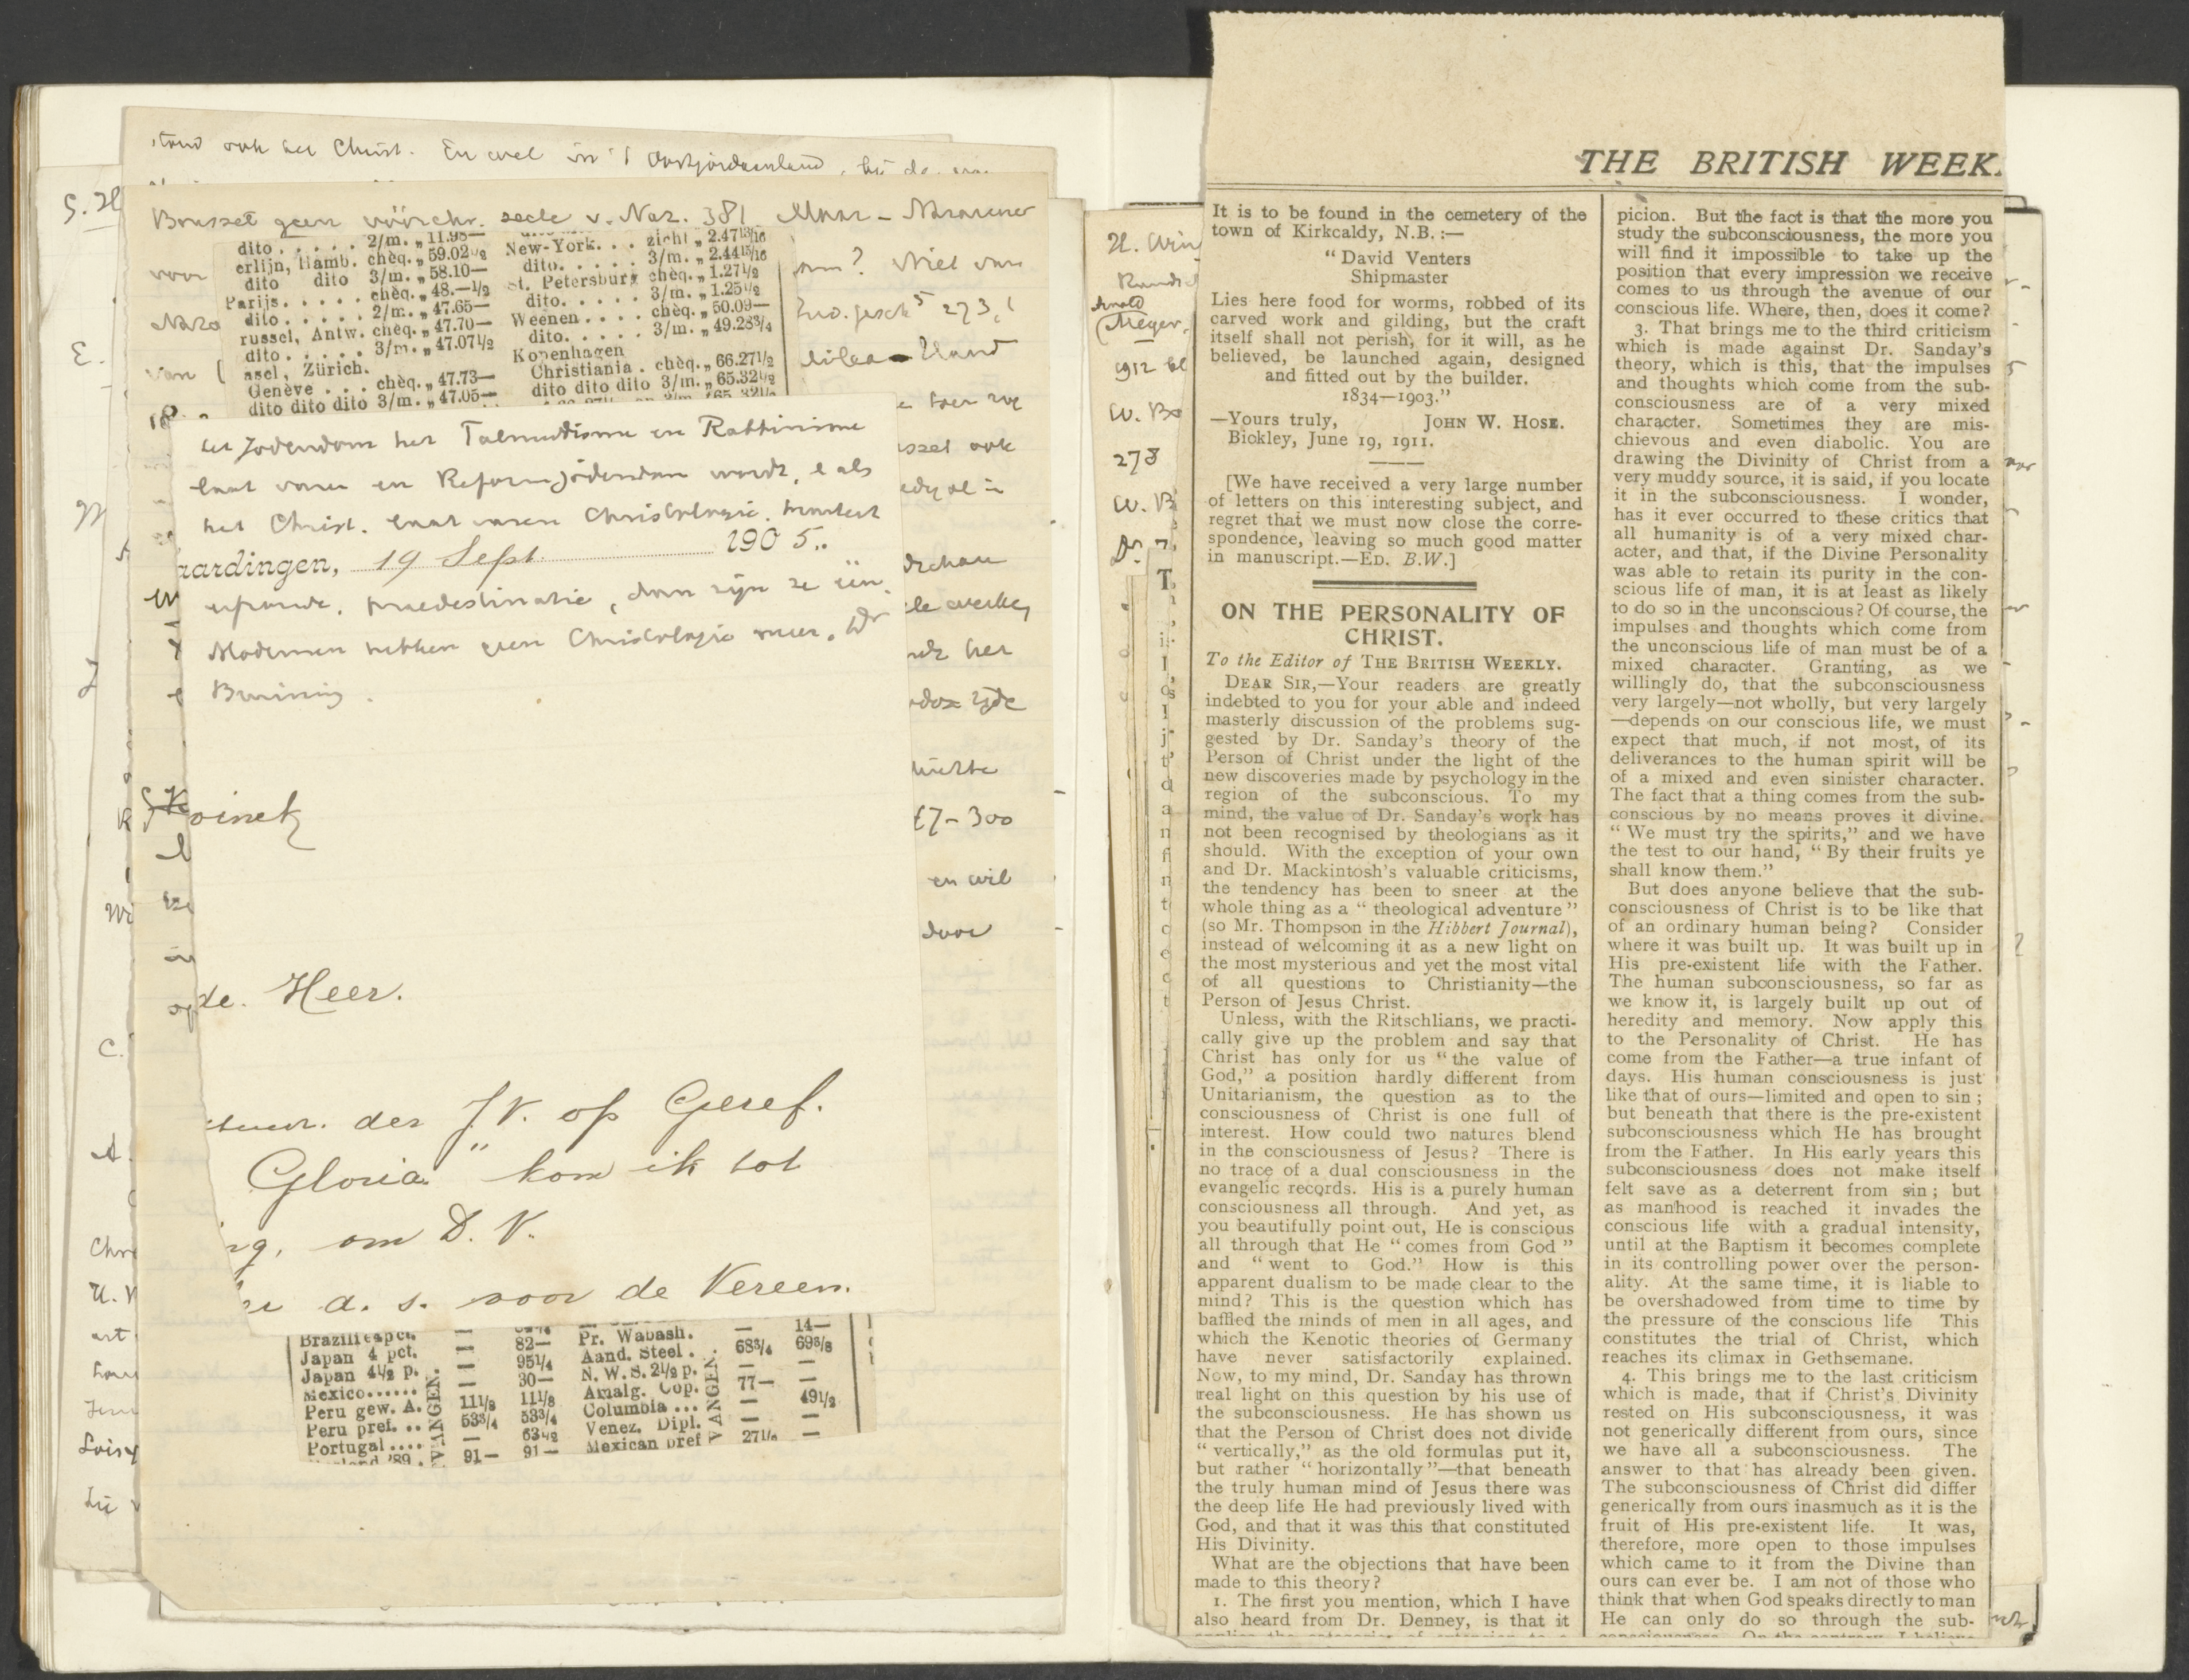 stand ook het Christ. En wel in 't Oostjordaanland, bij de
S. H
Bousset geen vóórchr. secte v. Naz. 381. Maar - Nazarener
voor
Nazo
van (
dito . . . . . 2/m. „ 11.98—
erlijn, Hamb. chèq. „ 59.02½
dito dito 3/m. „ 58.10—
Parijs. . . . . chèq. „ 48.—½
dito . . . . . 2/m. „ 47.65—
russel, Antw. chèq. „ 47.70—
dito . . . . . 3/m. „ 47.07½
asel, Zürich.
Genève . . . chèq. „ 47.73—
dito dito dito 3/m. „ 47.05—
New-York. . . zicht „ 2.47¹³/₁₆
dito. . . . . 3/m. „ 2.44¹⁵/₁₆
St. Petersburg chèq. „ 1.27½
dito. . . . . 3/m. „ 1.25½
Weenen . . . . chèq. „ 50.09—
dito. . . . . 3/m. „ 49.28¾
Kopenhagen
Christiania . chèq. „ 66.27½
dito dito dito 3/m. „ 65.32½
? Niet van
273,
het Jodendom het Talmudisme en Rabbinisme
laat varen en Reformjodendom wordt, e als
het Christ. laat varen Christologie,
aardingen, 19 Sept. 1905.
praedestinatie, dan zijn ze één.
Modernen hebben geen Christologie meer. Dr
Bruining.
ook
het
17-300
en wil
door
de. Heer.
der J.V. op Geref.
Gloria" kom ik tot
ng, om D. V.
a. s. voor de Vereen.
Brazilie 4 pct.
Japan 4 pct. — 82—
Japan 4½ p. — 95¼
Mexico...... — 30—
Peru gew. A. 11⅛ 11⅛
Peru pref. .. 53¾ 53¾
Portugal .... — 63½
'89 . 91— 91—
VANGEN.
Pr. Wabash. — 14—
Aand. Steel . 68¾ 69⅜
N. W. S. 2½ p. — —
Amalg. Cop. 77— —
Columbia ... — 49½
Venez. Dipl. — —
Mexican pref 27⅛ —
VANGEN.
E.
M
Wi
C.
A.
Chr
U. V
art
Loisy
H. Win
Rundsc
Arnold
(Meyer,
1912 bl
W. Bo
278
W. B
THE BRITISH WEEK.
It is to be found in the cemetery of the
town of Kirkcaldy, N.B. :—
" David Venters
Shipmaster
Lies here food for worms, robbed of its
carved work and gilding, but the craft
itself shall not perish, for it will, as he
believed, be launched again, designed
and fitted out by the builder.
1834—1903."
—Yours truly, JOHN W. HOSE.
Bickley, June 19, 1911.
[We have received a very large number
of letters on this interesting subject, and
regret that we must now close the corre-
spondence, leaving so much good matter
in manuscript.—ED. B.W.]
ON THE PERSONALITY OF
CHRIST.
To the Editor of THE BRITISH WEEKLY.
DEAR SIR,—Your readers are greatly
indebted to you for your able and indeed
masterly discussion of the problems sug-
gested by Dr. Sanday's theory of the
Person of Christ under the light of the
new discoveries made by psychology in the
region of the subconscious. To my
mind, the value of Dr. Sanday's work has
not been recognised by theologians as it
should. With the exception of your own
and Dr. Mackintosh's valuable criticisms,
the tendency has been to sneer at the
whole thing as a " theological adventure "
(so Mr. Thompson in the Hibbert Journal),
instead of welcoming it as a new light on
the most mysterious and yet the most vital
of all questions to Christianity—the
Person of Jesus Christ.
Unless, with the Ritschlians, we practi-
cally give up the problem and say that
Christ has only for us " the value of
God," a position hardly different from
Unitarianism, the question as to the
consciousness of Christ is one full of
interest. How could two natures blend
in the consciousness of Jesus? There is
no trace of a dual consciousness in the
evangelic records. His is a purely human
consciousness all through. And yet, as
you beautifully point out, He is conscious
all through that He " comes from God "
and " went to God." How is this
apparent dualism to be made clear to the
mind? This is the question which has
baffled the minds of men in all ages, and
which the Kenotic theories of Germany
have never satisfactorily explained.
Now, to my mind, Dr. Sanday has thrown
real light on this question by his use of
the subconsciousness. He has shown us
that the Person of Christ does not divide
" vertically," as the old formulas put it,
but rather " horizontally "—that beneath
the truly human mind of Jesus there was
the deep life He had previously lived with
God, and that it was this that constituted
His Divinity.
What are the objections that have been
made to this theory?
1. The first you mention, which I have
also heard from Dr. Denney, is that it
applies the categories of extension to a
picion. But the fact is that the more you
study the subconsciousness, the more you
will find it impossible to take up the
position that every impression we receive
comes to us through the avenue of our
conscious life. Where, then, does it come?
3. That brings me to the third criticism
which is made against Dr. Sanday's
theory, which is this, that the impulses
and thoughts which come from the sub-
consciousness are of a very mixed
character. Sometimes they are mis-
chievous and even diabolic. You are
drawing the Divinity of Christ from a
very muddy source, it is said, if you locate
it in the subconsciousness. I wonder,
has it ever occurred to these critics that
all humanity is of a very mixed char-
acter, and that, if the Divine Personality
was able to retain its purity in the con-
scious life of man, it is at least as likely
to do so in the unconscious? Of course, the
impulses and thoughts which come from
the unconscious life of man must be of a
mixed character. Granting, as we
willingly do, that the subconsciousness
very largely—not wholly, but very largely
—depends on our conscious life, we must
expect that much, if not most, of its
deliverances to the human spirit will be
of a mixed and even sinister character.
The fact that a thing comes from the sub-
conscious by no means proves it divine.
" We must try the spirits," and we have
the test to our hand, " By their fruits ye
shall know them."
But does anyone believe that the sub-
consciousness of Christ is to be like that
of an ordinary human being? Consider
where it was built up. It was built up in
His pre-existent life with the Father.
The human subconsciousness, so far as
we know it, is largely built up out of
heredity and memory. Now apply this
to the Personality of Christ. He has
come from the Father—a true infant of
days. His human consciousness is just
like that of ours—limited and open to sin ;
but beneath that there is the pre-existent
subconsciousness which He has brought
from the Father. In His early years this
subconsciousness does not make itself
felt save as a deterrent from sin ; but
as manhood is reached it invades the
conscious life with a gradual intensity,
until at the Baptism it becomes complete
in its controlling power over the person-
ality. At the same time, it is liable to
be overshadowed from time to time by
the pressure of the conscious life This
constitutes the trial of Christ, which
reaches its climax in Gethsemane.
4. This brings me to the last criticism
which is made, that if Christ's Divinity
rested on His subconsciousness, it was
not generically different from ours, since
we have all a subconsciousness. The
answer to that has already been given.
The subconsciousness of Christ did differ
generically from ours inasmuch as it is the
fruit of His pre-existent life. It was,
therefore, more open to those impulses
which came to it from the Divine than
ours can ever be. I am not of those who
think that when God speaks directly to man
He can only do so through the sub-
consciousness. On the contrary, I believe